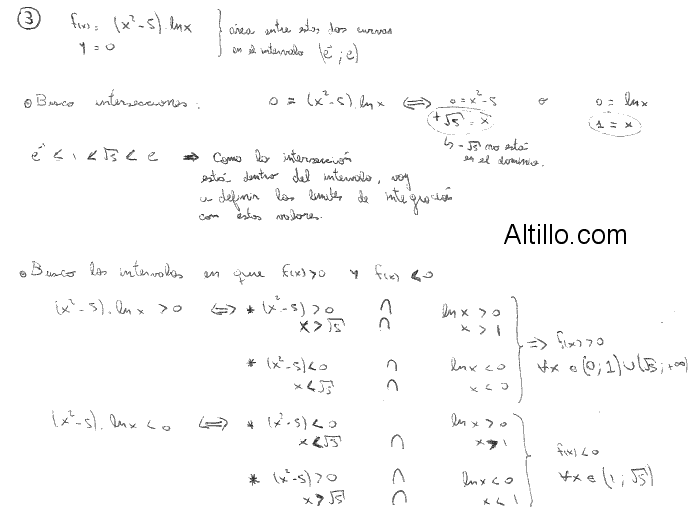 ③ f(x) = (x² - 5) . ln x } área entre estas dos curvas
y = 0 en el intervalo (e⁻¹ ; e)
• Busco intersecciones : 0 = (x² - 5) . ln x ⟺ 0 = x² - 5 o 0 = ln x
+√5 = x 1 = x
↳ -√5 no está en el dominio.
e⁻¹ < 1 < √5 < e → Como la intersección
está dentro del intervalo, voy
a definir los límites de integración
con estos valores.
Altillo.com
• Busco los intervalos en que f(x) > 0 y f(x) < 0
(x² - 5) . ln x > 0 ⟺ * (x² - 5) > 0 ∩ ln x > 0
x > √5 ∩ x > 1
⇒ f(x) > 0
* (x² - 5) < 0 ∩ ln x < 0 ∀x ∈ (0 ; 1) ∪ (√5 ; +∞)
x < √5 ∩ x < 0
(x² - 5) . ln x < 0 ⟺ * (x² - 5) < 0 ∩ ln x > 0
x < √5 ∩ x > 1
f(x) < 0
* (x² - 5) > 0 ∩ ln x < 0 ∀x ∈ (1 ; √5)
x > √5 ∩ x < 1